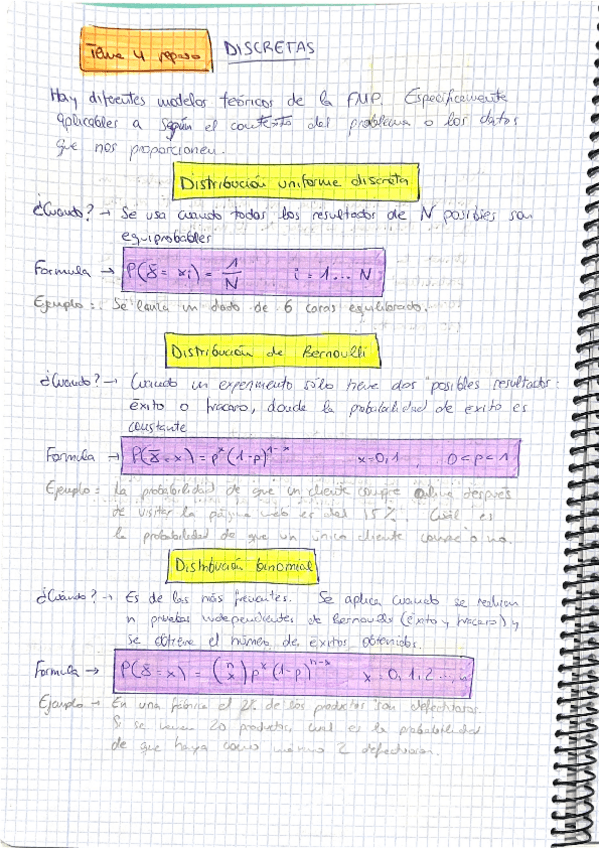 Tema 4 repaso DISCRETAS
Hay diferentes modelos teóricos de la FMP. Específicamente
aplicables a según el contexto del problema o los datos
que nos proporcionen.
Distribución uniforme discreta
¿Cuando? → Se usa cuando todos los resultados de N posibles son
equiprobables
Formula → P(X = xi) = 1/N i = 1 ... N
Ejemplo: Se lanza un dado de 6 caras equilibrado.
Distribución de Bernoulli
¿Cuando? → Cuando un experimento sólo tiene dos posibles resultados:
éxito o fracaso, donde la probabilidad de exito es
constante
Formula → P(X = x) = p^x (1-p)^1-x x=0,1 0<p<1
Ejemplo: la probabilidad de que un cliente compre online después
de visitar la página web es del 15%. Cuál es
la probabilidad de que un único cliente compre o no.
Distribución binomial
¿Cuando? → Es de las más frecuentes. Se aplica cuando se realizan
n pruebas independientes de Bernoulli (éxito y fracaso) y
se obtiene el número de éxitos obtenidos.
Formula → P(X = x) = (n x) p^x (1-p)^n-x x = 0, 1, 2 ..., n
Ejemplo → En una fábrica el 2% de los productos son defectuosos.
Si se 20 productos, cuál es la probabilidad
de que haya como máximo 2 defectuosos.